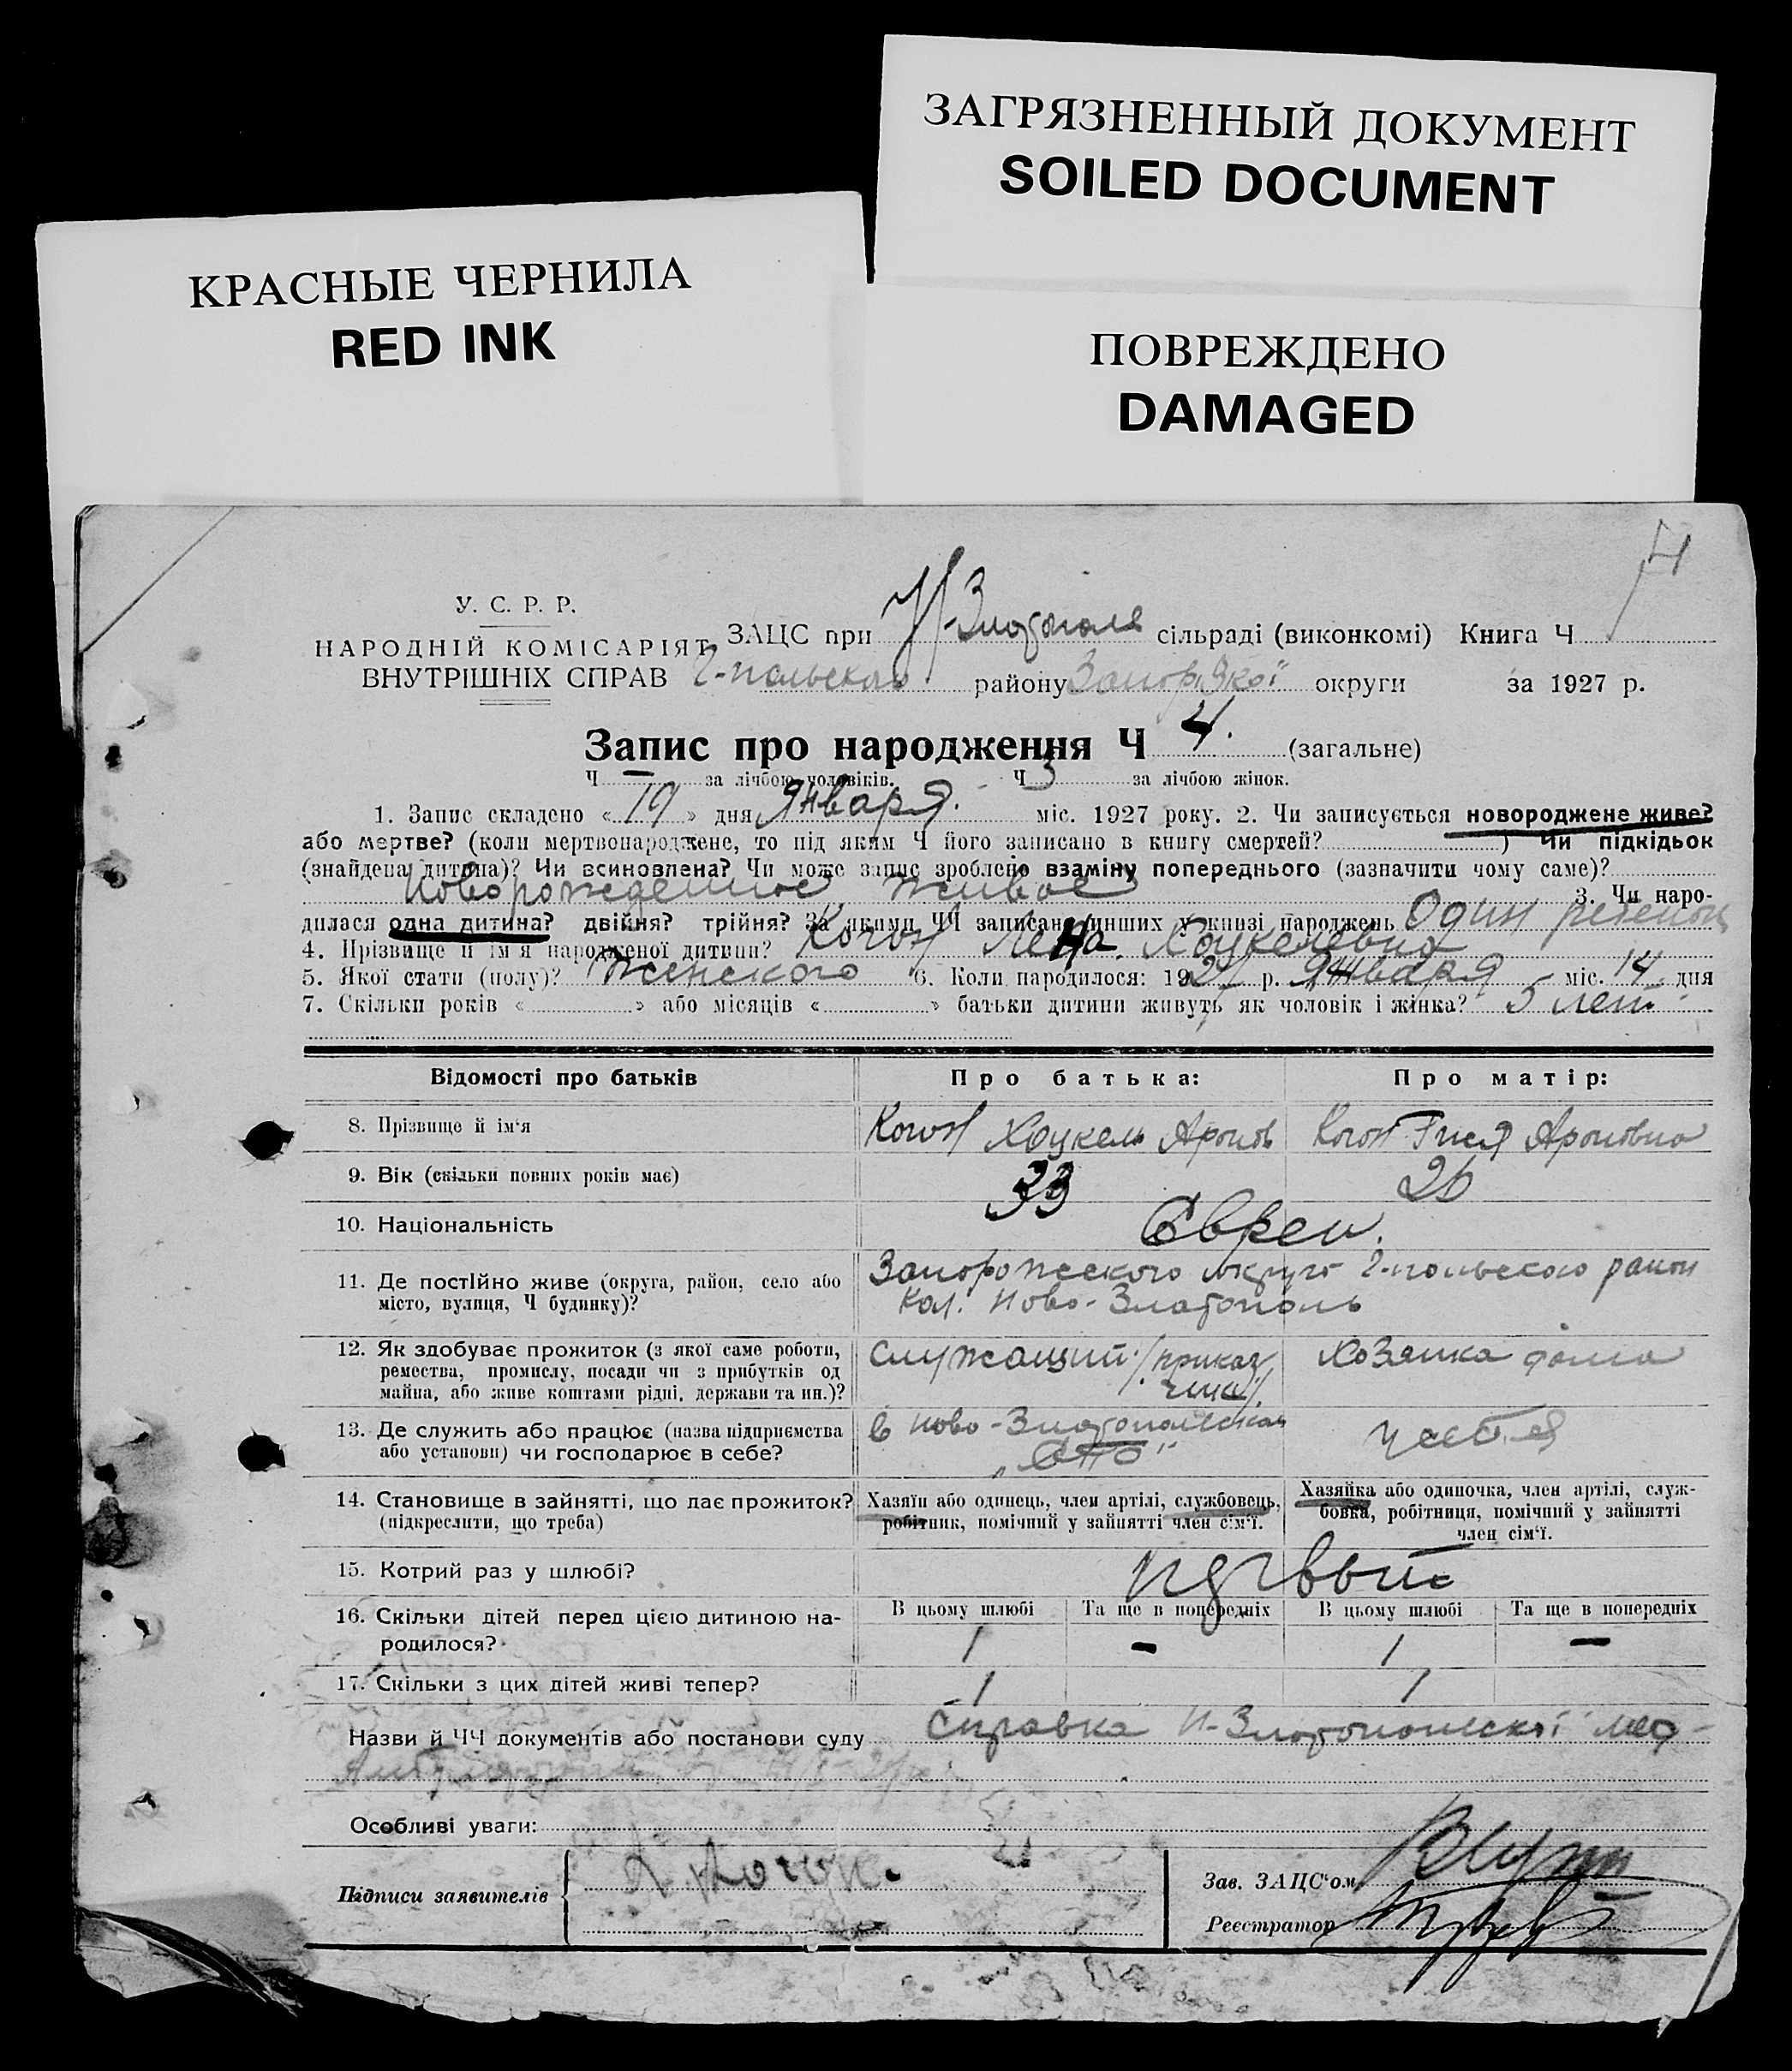 ЗАГРЯЗНЕННЫЙ ДОКУМЕНТ
SOILED DOCUMENT
КРАСНЫЕ ЧЕРНИЛА
RED INK
ПОВРЕЖДЕНО
DAMAGED
4
У. С. Р. Р.
НАРОДНІЙ КОМІСАРІЯТ
ВНУТРІШНІХ СПРАВ
ЗАЦС при Н-Златополе сільраді (виконкомі) Книга Ч
Г-польского району Запорізкої округи за 1927 р.
Запис про народження Ч 4. (загальне)
Ч — за лічбою чоловіків. Ч 3 за лічбою жінок.
1. Запис складено « 19 » дня Января. міс. 1927 року. 2. Чи записується новороджене живе?
або мертве? (коли мертвонароджене, то під яким Ч його записано в книгу смертей? ) Чи підкідьок
(знайдена дитина)? Чи всиновлена? Чи може запис зроблено взаміну попереднього (зазначити чому саме)?
Новорожденное живое 3. Чи наро-
дилася одна дитина? двійня? трійня? За якими ЧЧ записано инших у книзі народжень Один ребенок
4. Прізвище й ім'я народженої дитини? Когон Лена. Хацкелевна
5. Якої стати (полу)? Женского 6. Коли народилося: 1927 р. Января міс. 14 дня
7. Скільки років « » або місяців « » батьки дитини живуть як чоловік і жінка? 5 лет.
Відомості про батьків Про батька: Про матір:
8. Прізвище й ім'я Когон Хацкель Аронов Когон Гися Ароновна
9. Вік (скільки повних років має) 33 26
10. Національність Евреи.
11. Де постійно живе (округа, район, село або
місто, вулиця, Ч будинку)?
Запорожского округа Г-польского район
Кол. Ново-Златополь
12. Як здобуває прожиток (з якої саме роботи,
ремества, промислу, посади чи з прибутків од
майна, або живе коштами рідні, держави та ин.)?
Служащий /приказ
чик/
Хозяика дома
13. Де служить або працює (назва підприємства
або установи) чи господарює в себе?
в Ново-Златопольском
14. Становище в зайнятті, що дає прожиток?
(підкреслити, що треба)
Хазяїн або одинець, член артілі, службовець,
робітник, помічний у зайнятті член сім'ї.
Хазяйка або одиночка, член артілі, служ-
бовка, робітниця, помічний у зайнятті
член сім'ї.
15. Котрий раз у шлюбі? первый
16. Скільки дітей перед цією дитиною на-
родилося?
В цьому шлюбі Та ще в попередніх В цьому шлюбі Та ще в попередніх
1 — 1 —
17. Скільки з цих дітей живі тепер? 1 1
Назви й ЧЧ документів або постанови суду Справка Н-Златопольскої мед-
Особливі уваги:
Підписи заявителів Х Когон.
Зав. ЗАЦС'ом
Реєстратор